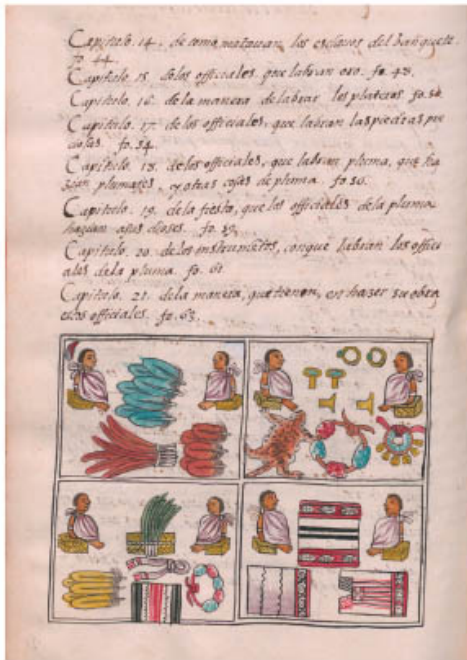 Capitulo. 14. de como matauan los esclauos del banquete.
fo. 44.
Capitulo. 15. delos officiales, que labran oro. fo. 48.
Capitulo. 16. dela manera de labrar los plateros fo. 50.
Capitulo. 17. de los officiales, que labran las piedras pre
ciosas. fo. 54.
Capitulo. 18. delos officiales, que labran pluma, que ha
zian plumajes, y otras cosas de pluma. fo. 56.
Capitulo. 19. dela fiesta, que los officiales de la pluma
hazian a sus dioses. fo. 59.
Capitulo. 20. de los instrumētos, con que labran los offici
ales dela pluma. fo. 61
Capitulo. 21. dela manera, que tienen, en hazer su obra
estos officiales. fo. 63.